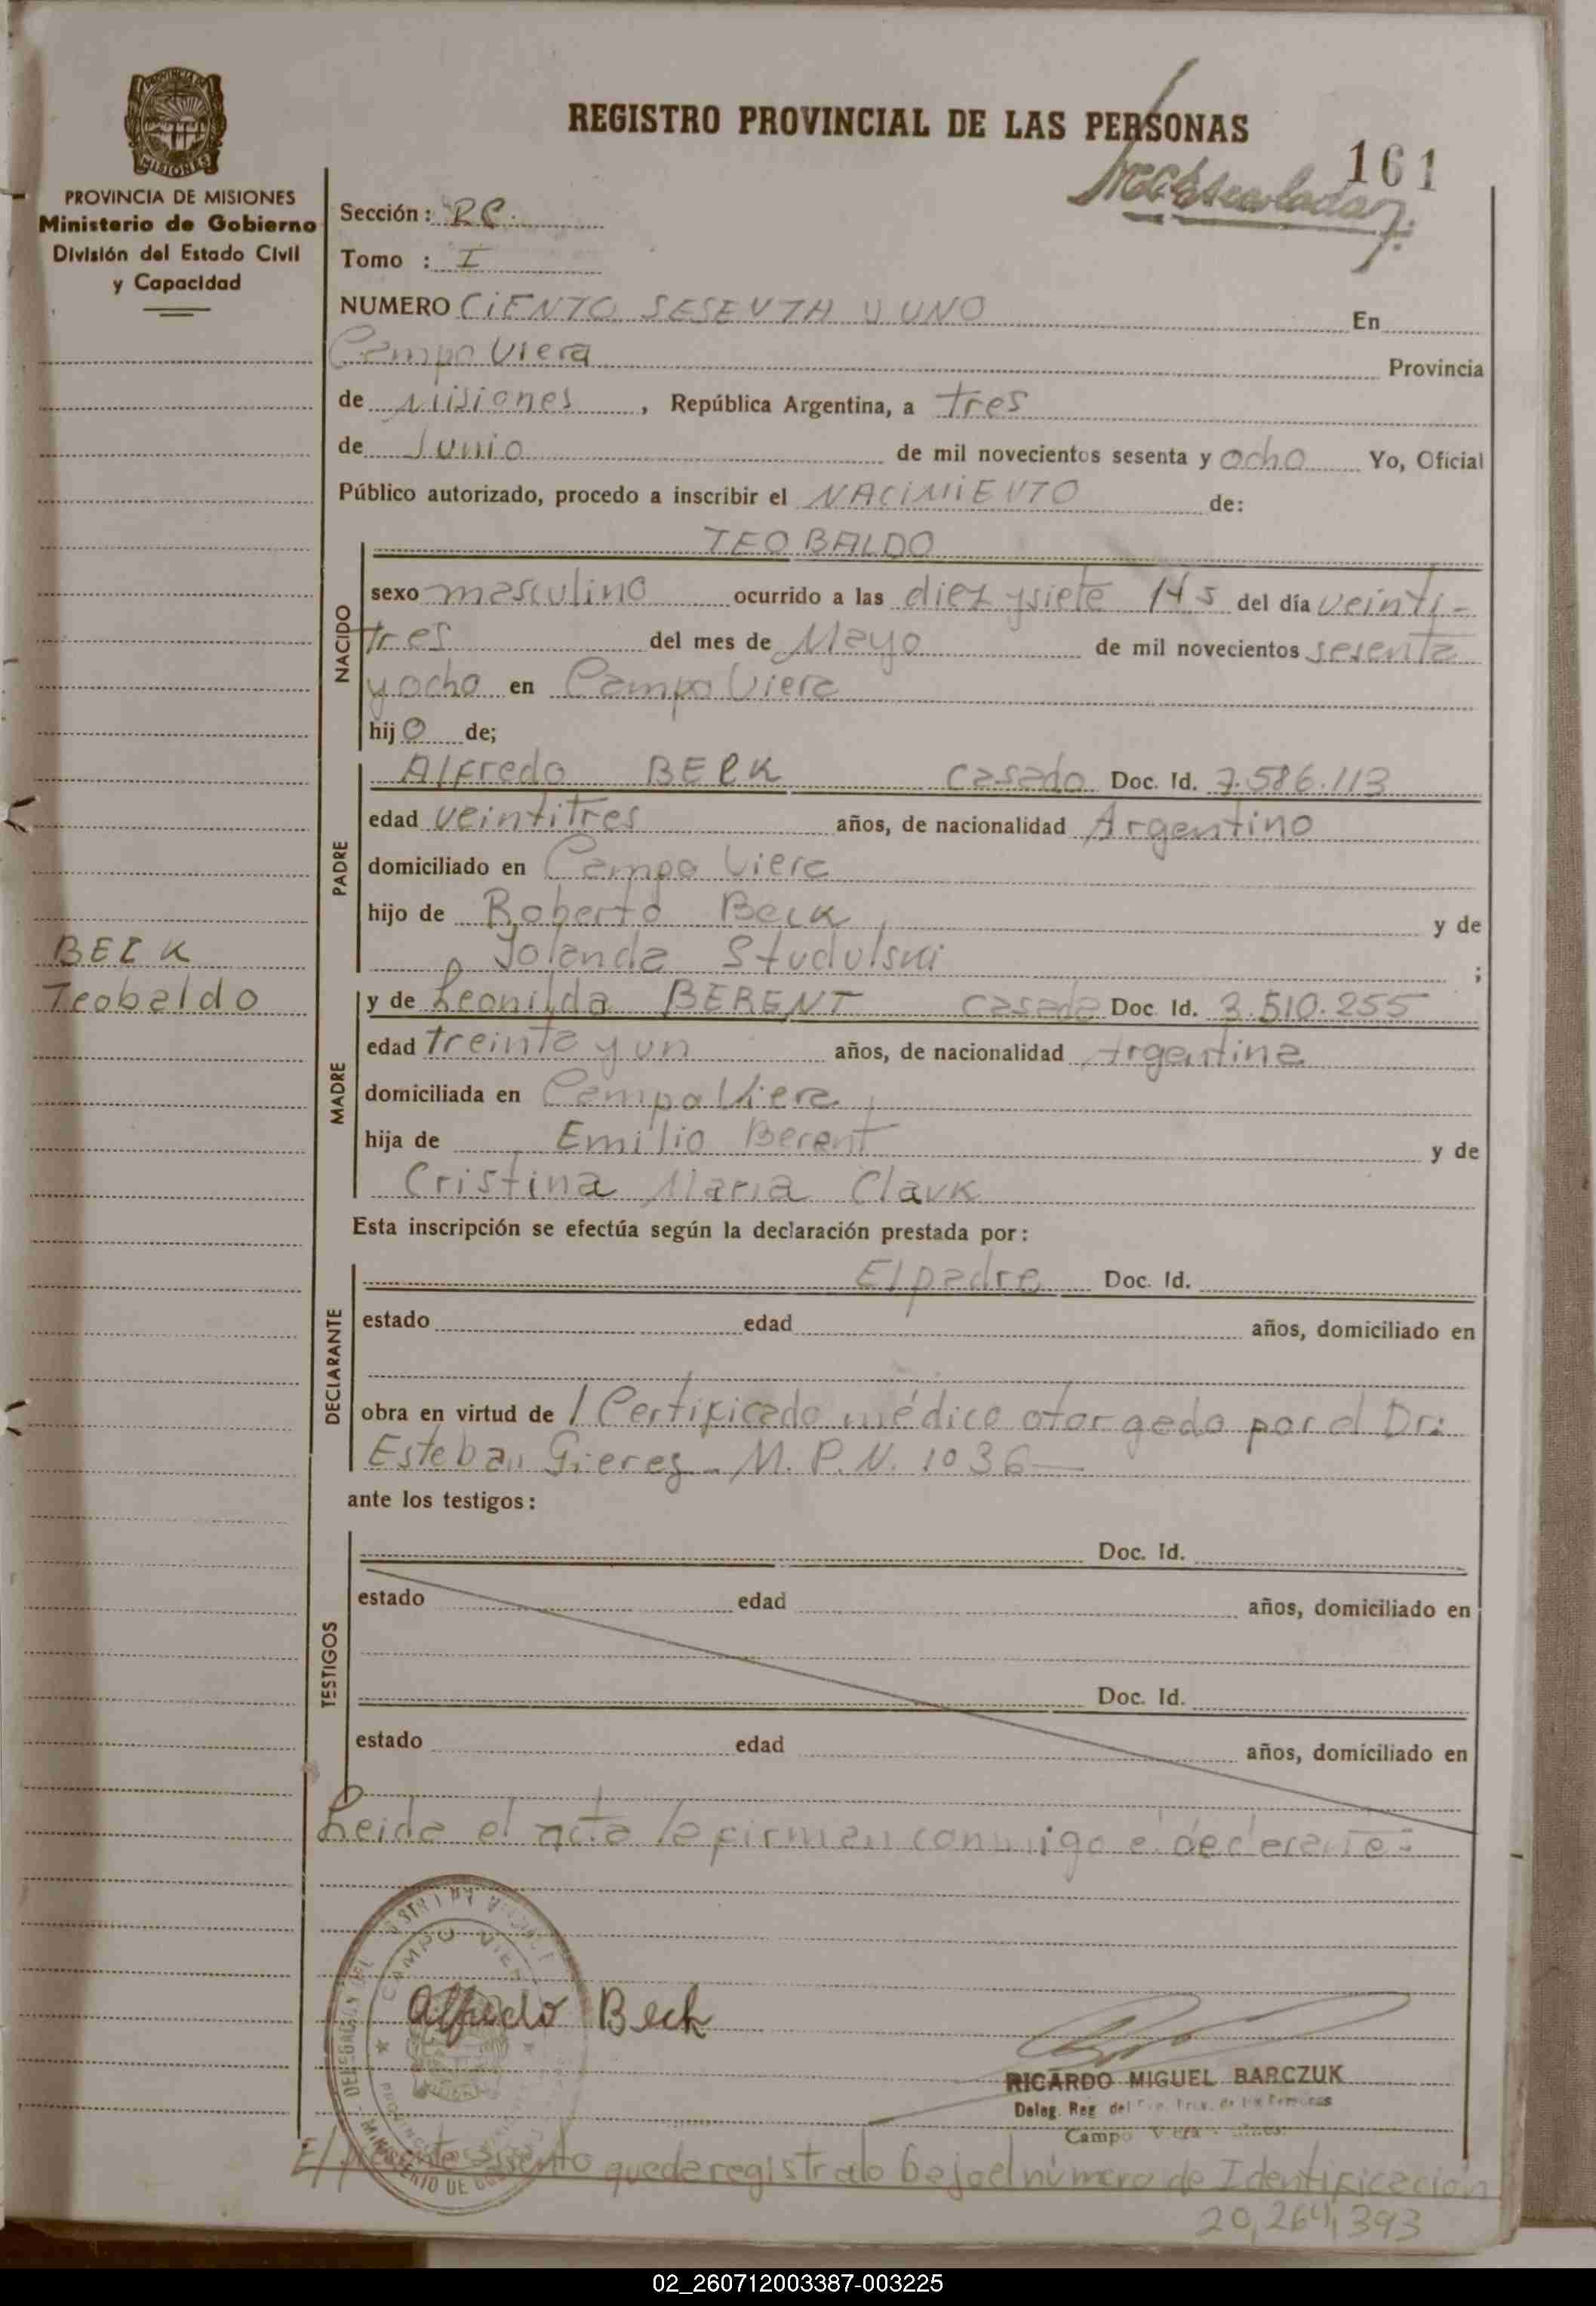 REGISTRO PROVINCIAL DE LAS PERSONAS
161
PROVINCIA DE MISIONES
Ministerio de Gobierno
División del Estado Civil
y Capacidad
Sección: RC.
Tomo : I
NUMERO CIENTO SESENTA Y UNO En
Campo Viera Provincia
de Misiones, República Argentina, a tres
de Junio de mil novecientos sesenta y ocho Yo, Oficial
Público autorizado, procedo a inscribir el NACIMIENTO de:
TEOBALDO
NACIDO
sexo masculino ocurrido a las diez y siete del día veinti-
tres del mes de Mayo de mil novecientos sesenta
y ocho en Campo Viera
hijo de;
PADRE
Alfredo BECK casado Doc. Id. 7.586.113
edad veintitres años, de nacionalidad Argentino
domiciliado en Campo Viera
hijo de Roberto Beck y de
Yolanda Studulski ;
BECK
Teobaldo
MADRE
y de Leonilda BERENT casada Doc. Id. 3.510.255
edad treinta y un años, de nacionalidad Argentina
domiciliada en Campo Viera
hija de Emilio Berent y de
Cristina Maria Clauk
Esta inscripción se efectúa según la declaración prestada por:
DECLARANTE
El padre Doc. Id.
estado edad años, domiciliado en
obra en virtud de 1 Certificado médico otorgado por el Dr:
Esteban Gierez - M. P. N. 1036—
ante los testigos:
TESTIGOS
Doc. Id.
estado edad años, domiciliado en
Doc. Id.
estado edad años, domiciliado en
Leida el acta la firman conmigo el declarante.-
CAMPO VIERA
Alfredo Beck
RICARDO MIGUEL BARCZUK
Deleg. Reg. del Prov. de las Personas
Campo Viera
El presente asiento queda registrado bajo el número de Identificación
20,264,393
02_260712003387-003225